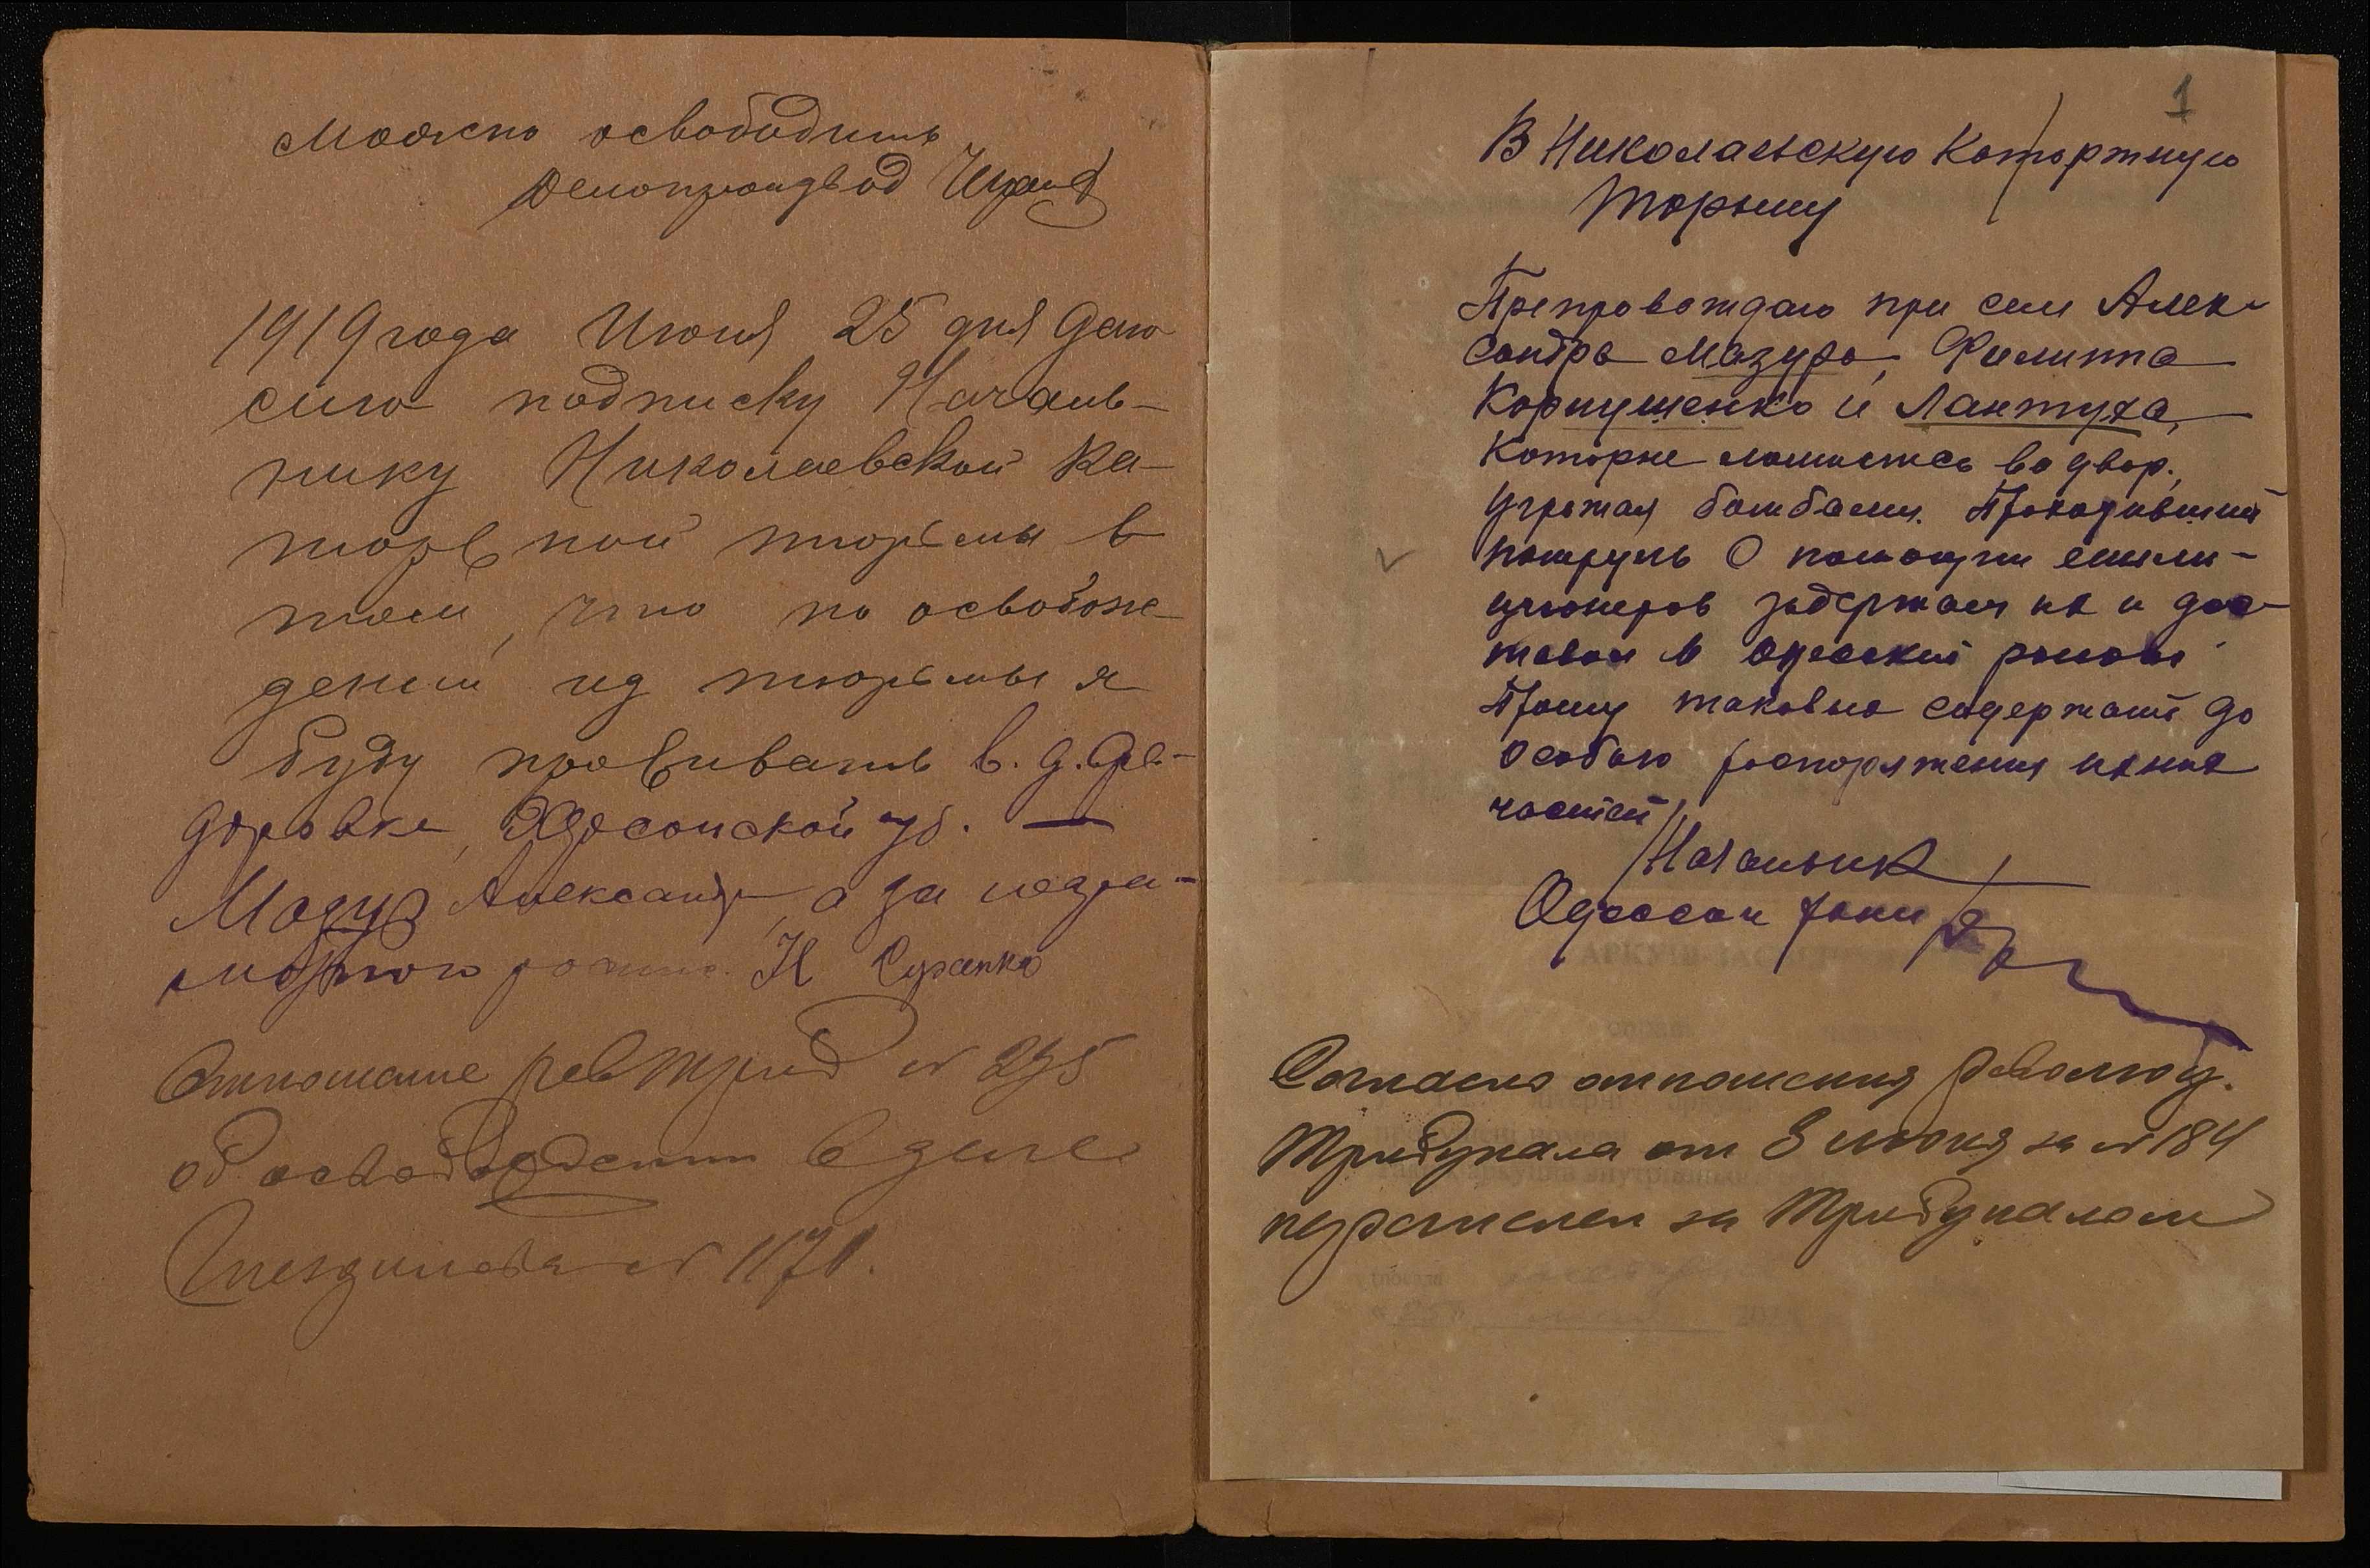 Можно освободить
Делопроизвод
1919 года Июня 25 дня даю
сию подписку Началь-
нику Николаевской Ка-
торжной тюрьмы в
том, что по освобож-
дении из тюрьмы я
буду проживать в. д. Фе-
доровке, Херсонской губ. —
Мазур Александр, а за неграмотного
Отношение РевТриб № 295
об освобождении в деле
№ 1171.
1
В Николаевскую Каторжную
Тюрьму
Препровождаю при сем Алек-
сандра Мазура, Филиппа
Корпушенко и Лантуха,
которые ломились во двор,
угрожая бомбами. Проходивший
патруль с помощи мили-
ционеров задержал их и дос-
тавил в Одесский район
Прошу таковых содержать до
особого распоряжения
частей
Начальник
Одесск
Согласно отношения Революц.
Трибунала от 8 июня за № 184
перечислен за Трибуналом